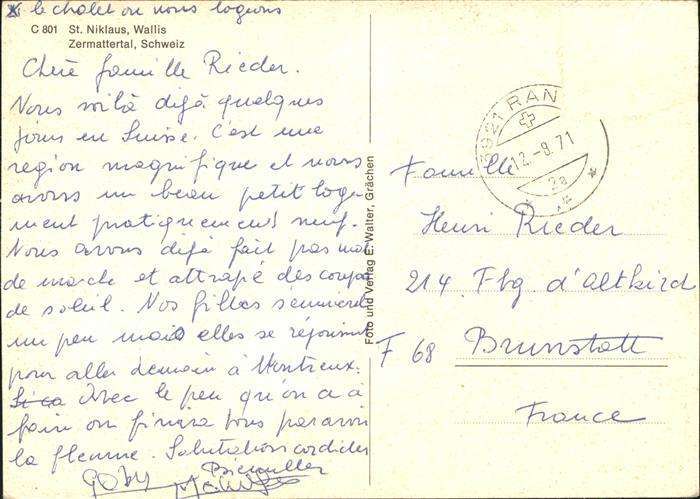 X le chalet où nous logeons
C 801 St. Niklaus, Wallis
Zermattertal, Schweiz
Chère famille Rieder.
Nous voilà déjà quelques
jours en Suisse. C'est une
région magnifique et nous
avons un beau petit loge-
ment pratiquement neuf.
Nous avons déjà fait pas mal
de marche et attrapé des coups
de soleil. Nos filles s'ennuient
un peu mais elles se réjouissent
pour aller demain à Montreux.
Avec le peu qu'on a à
faire on finira tous par avoir
la flemme. Salutations cordiales
Gaby
Foto und Verlag E. Walter, Grächen
3921 RAN
12.-8.71
Famille
Henri Rieder
214. Fbg. d'Altkirch
F 68 Brunstatt
France